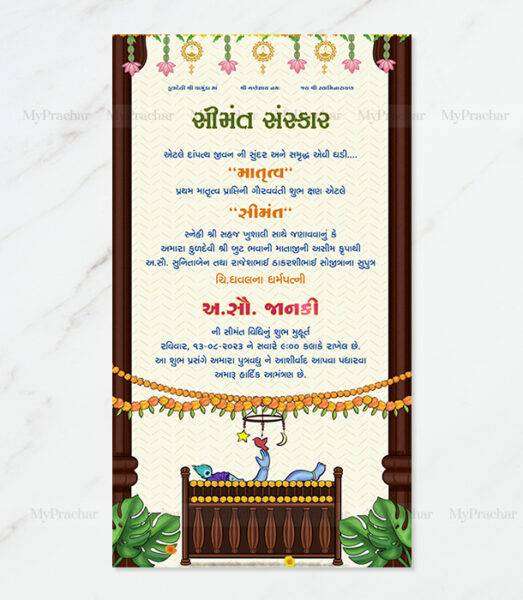 કુળદેવી શ્રી ચામુંડા માં શ્રી ગણેશાય નમઃ જય શ્રી સ્વામિનારાયણ
સીમંત સંસ્કાર
એટલે દાંપત્ય જીવન ની સુંદર અને સમૃદ્ધ એવી ઘડી....
"માતૃત્વ"
પ્રથમ માતૃત્વ પ્રાપ્તિની ગૌરવવંતી શુભ ક્ષણ એટલે
"સીમંત"
સ્નેહી શ્રી સહજ ખુશાલી સાથે જણાવવાનું કે
અમારા કુળદેવી શ્રી બુટ ભવાની માતાજીની અસીમ કૃપાથી
અ.સૌ. સુનિતાબેન તથા રાજેશભાઈ ઠાકરશીભાઈ સોજીત્રાના સુપુત્ર
ચિ.ધવલના ધર્મપત્ની
અ.સૌ. જાનકી
ની સીમંત વિધિનું શુભ મુહૂર્ત
રવિવાર, ૧૩-૦૮-૨૦૨૩ ને સવારે ૯:૦૦ કલાકે રાખેલ છે.
આ શુભ પ્રસંગે અમારા પુત્રવધુ ને આશીર્વાદ આપવા પધારવા
અમારૂ હાર્દિક આમંત્રણ છે.
MyPrachar MyPrachar MyPrachar
MyPrachar MyPrachar MyPrachar